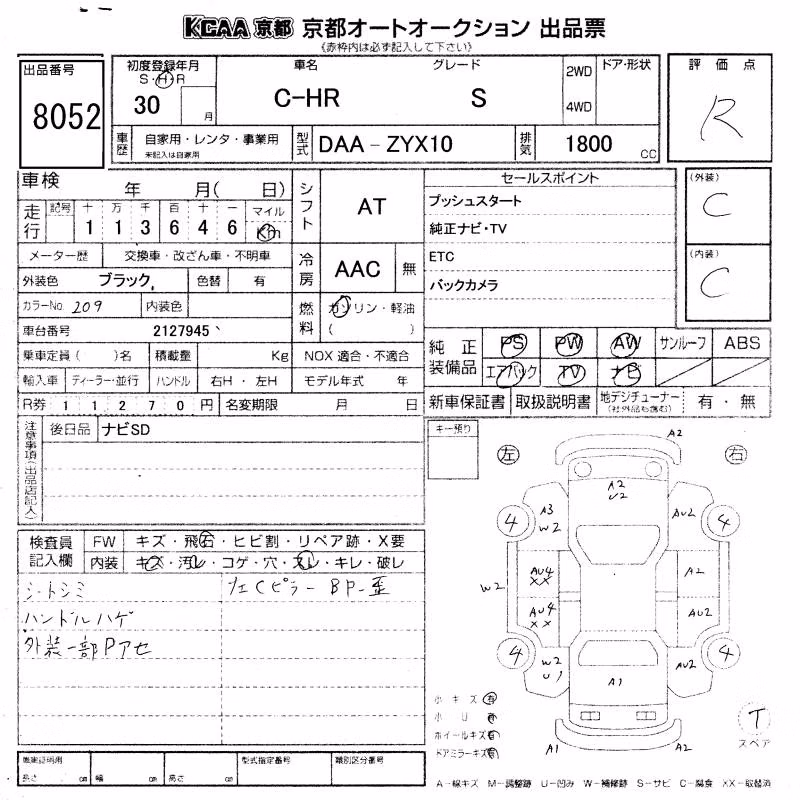 KCAA 京都 京都オートオークション 出品票
《赤枠内は必ず記入して下さい》
出品番号
8052
初度登録年月
S・H・R
30 月
車名
C-HR
グレード
S
2WD
4WD
ドア・形状
評価点
R
車歴
自家用・レンタ・事業用
未記入は自家用
型式
DAA-ZYX10
排気
1800 CC
車検 年 月( 日)
走行
記号 十 万 千 百 十 一 マイル
1 1 3 6 4 6 Km
メーター歴 交換車・改ざん車・不明車
外装色 ブラック 色替 有
カラーNo. 209 内装色
車台番号 2127945
乗車定員( )名 積載量 Kg
輸入車 ディーラー・並行 ハンドル 右H・左H
R券 1 1 2 7 0 円 名変期限 月 日
シフト
AT
冷房
AAC 無
燃料
ガソリン・軽油
( )
NOX 適合・不適合
モデル年式 年
セールスポイント
プッシュスタート
純正ナビ・TV
ETC
バックカメラ
(外装)
C
(内装)
C
純正装備品
PS PW AW サンルーフ ABS
エアバック TV ナビ
新車保証書 取扱説明書 地デジチューナー
(社外品も含む)
有・無
注意事項(出品店記入)
後日品 ナビSD
キー預り
検査員記入欄
FW キズ・飛石・ヒビ割・リペア跡・X要
内装 キズ・汚レ・コゲ・穴・スレ・キレ・破レ
シートシミ
ハンドルハゲ
外装一部Pアセ
左 右
A2
A2
U2
A3
W2
AU2
4 4
AU4
XX
A2
W2
AU4
XX
AU2
4 4
W2
U1
AU2
A1
A1 A2
小キズ 有
小U 有
ホイールキズ 有
ドアミラーキズ 有
T
スペア
長さ cm 幅 cm 高さ cm
型式指定番号
類別区分番号
A-線キズ M-調整跡 U-凹み W-補修跡 S-サビ C-腐食 XX-取替済